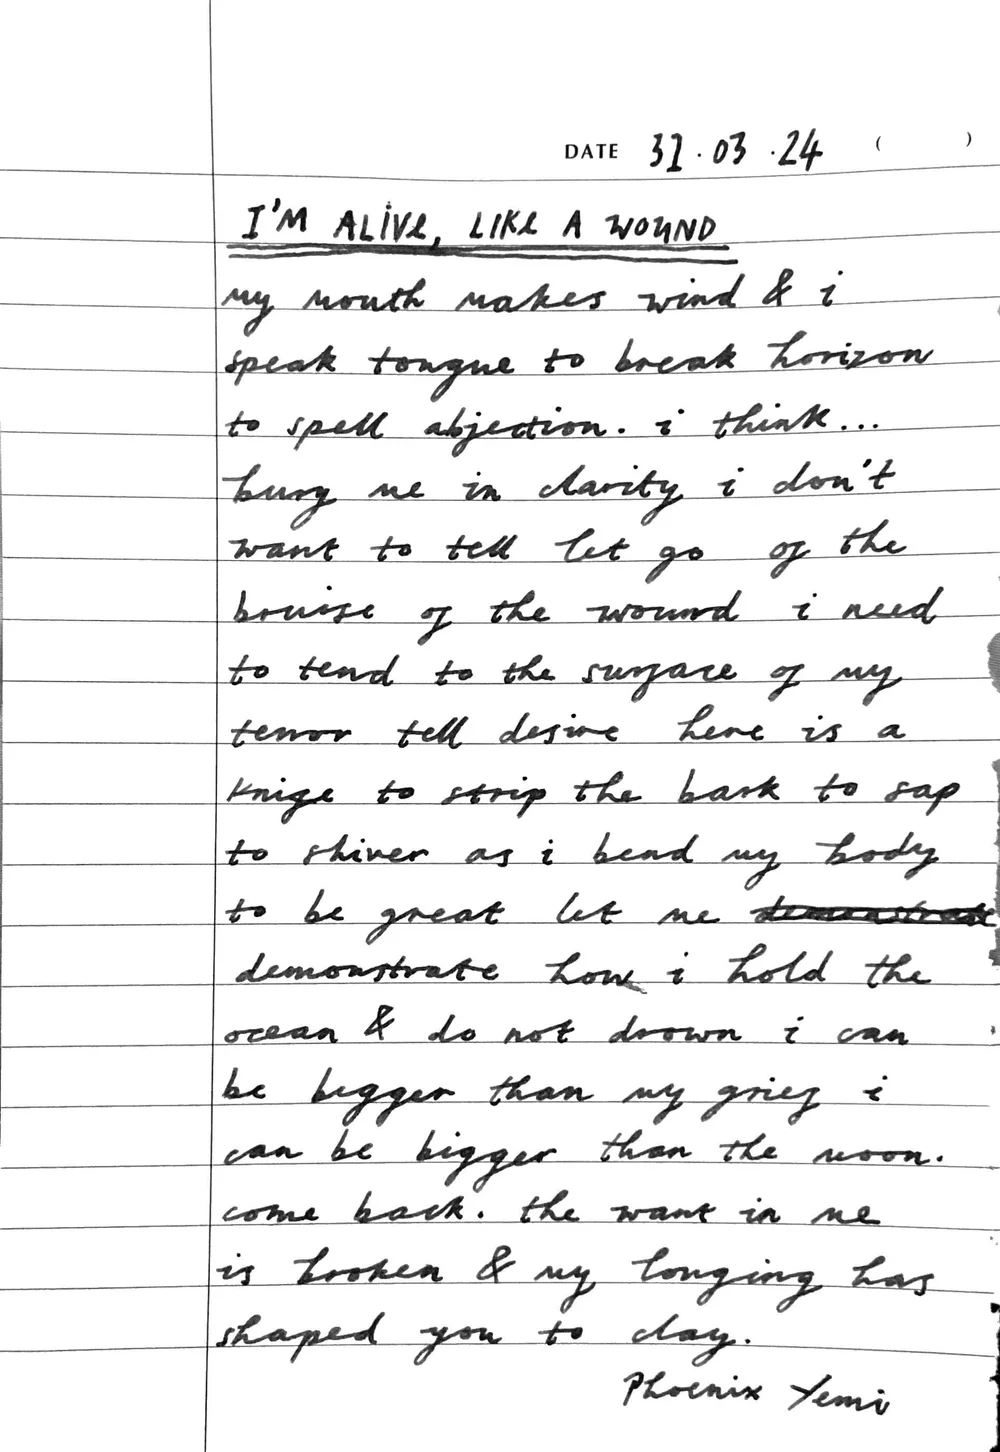 DATE 31.03.24 ( )
I'M ALIVE, LIKE A WOUND
my mouth makes wind & i
speak tongue to break horizon
to spell abjection. i think...
bury me in clarity i don't
want to tell let go of the
bruise of the wound i need
to tend to the surface of my
terror tell desire here is a
knife to strip the bark to sap
to shiver as i bend my body
to be great let me demonstrate
demonstrate how i hold the
ocean & do not drown i can
be bigger than my grief i
can be bigger than the moon.
come back. the want in me
is broken & my longing has
shaped you to clay.
Phoenix Yemi